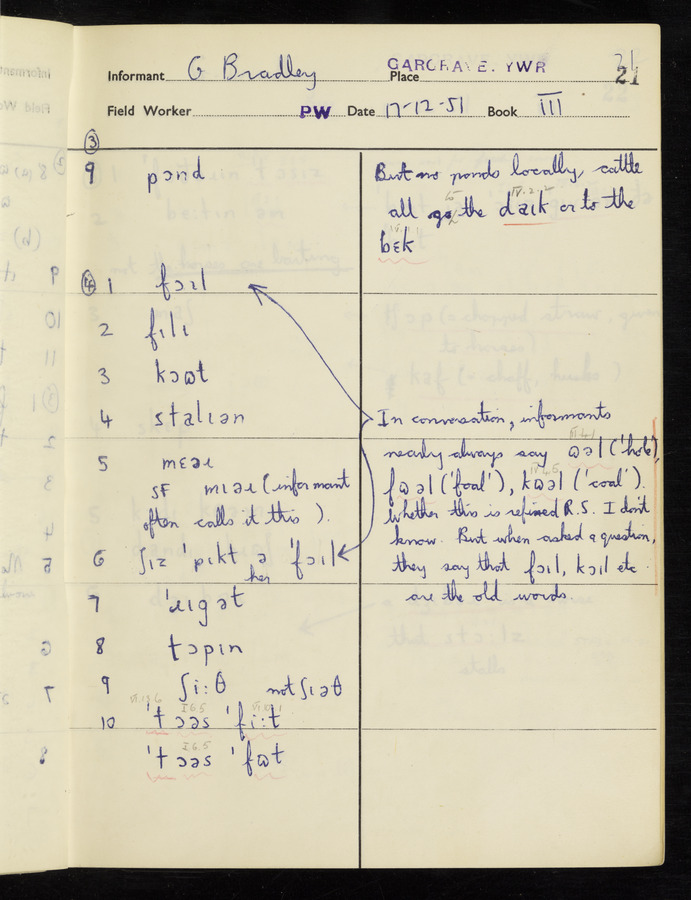 Informant G Bradley Place GARGRAVE. YWR 21
Field Worker PW Date 17-12-51 Book III
③
9 pɔnd
But no ponds locally, cattle
all go to the daɪk or to the
bɛk
④ 1 fɔɪl
2 fɪlɪ
3 kɔʊt
4 stalɪən
5 mɛəɹ
SF mɪəɹ (informant
often calls it this).
6 ʃɪz 'pɪkt ə 'fɔɪl
her
7 'ɹɪgət
8 tɔpɪn
9 ʃi:θ not ʃɪəθ
10 't ɔəs 'fi:t
't ɔəs 'fʊt
In conversation, informants
nearly always say ʊəl ('hole'),
fʊəl ('foal'), kʊəl ('coal').
Whether this is refined R.S. I don't
know. But when asked a question,
they say that fɔɪl, kɔɪl etc
are the old words.